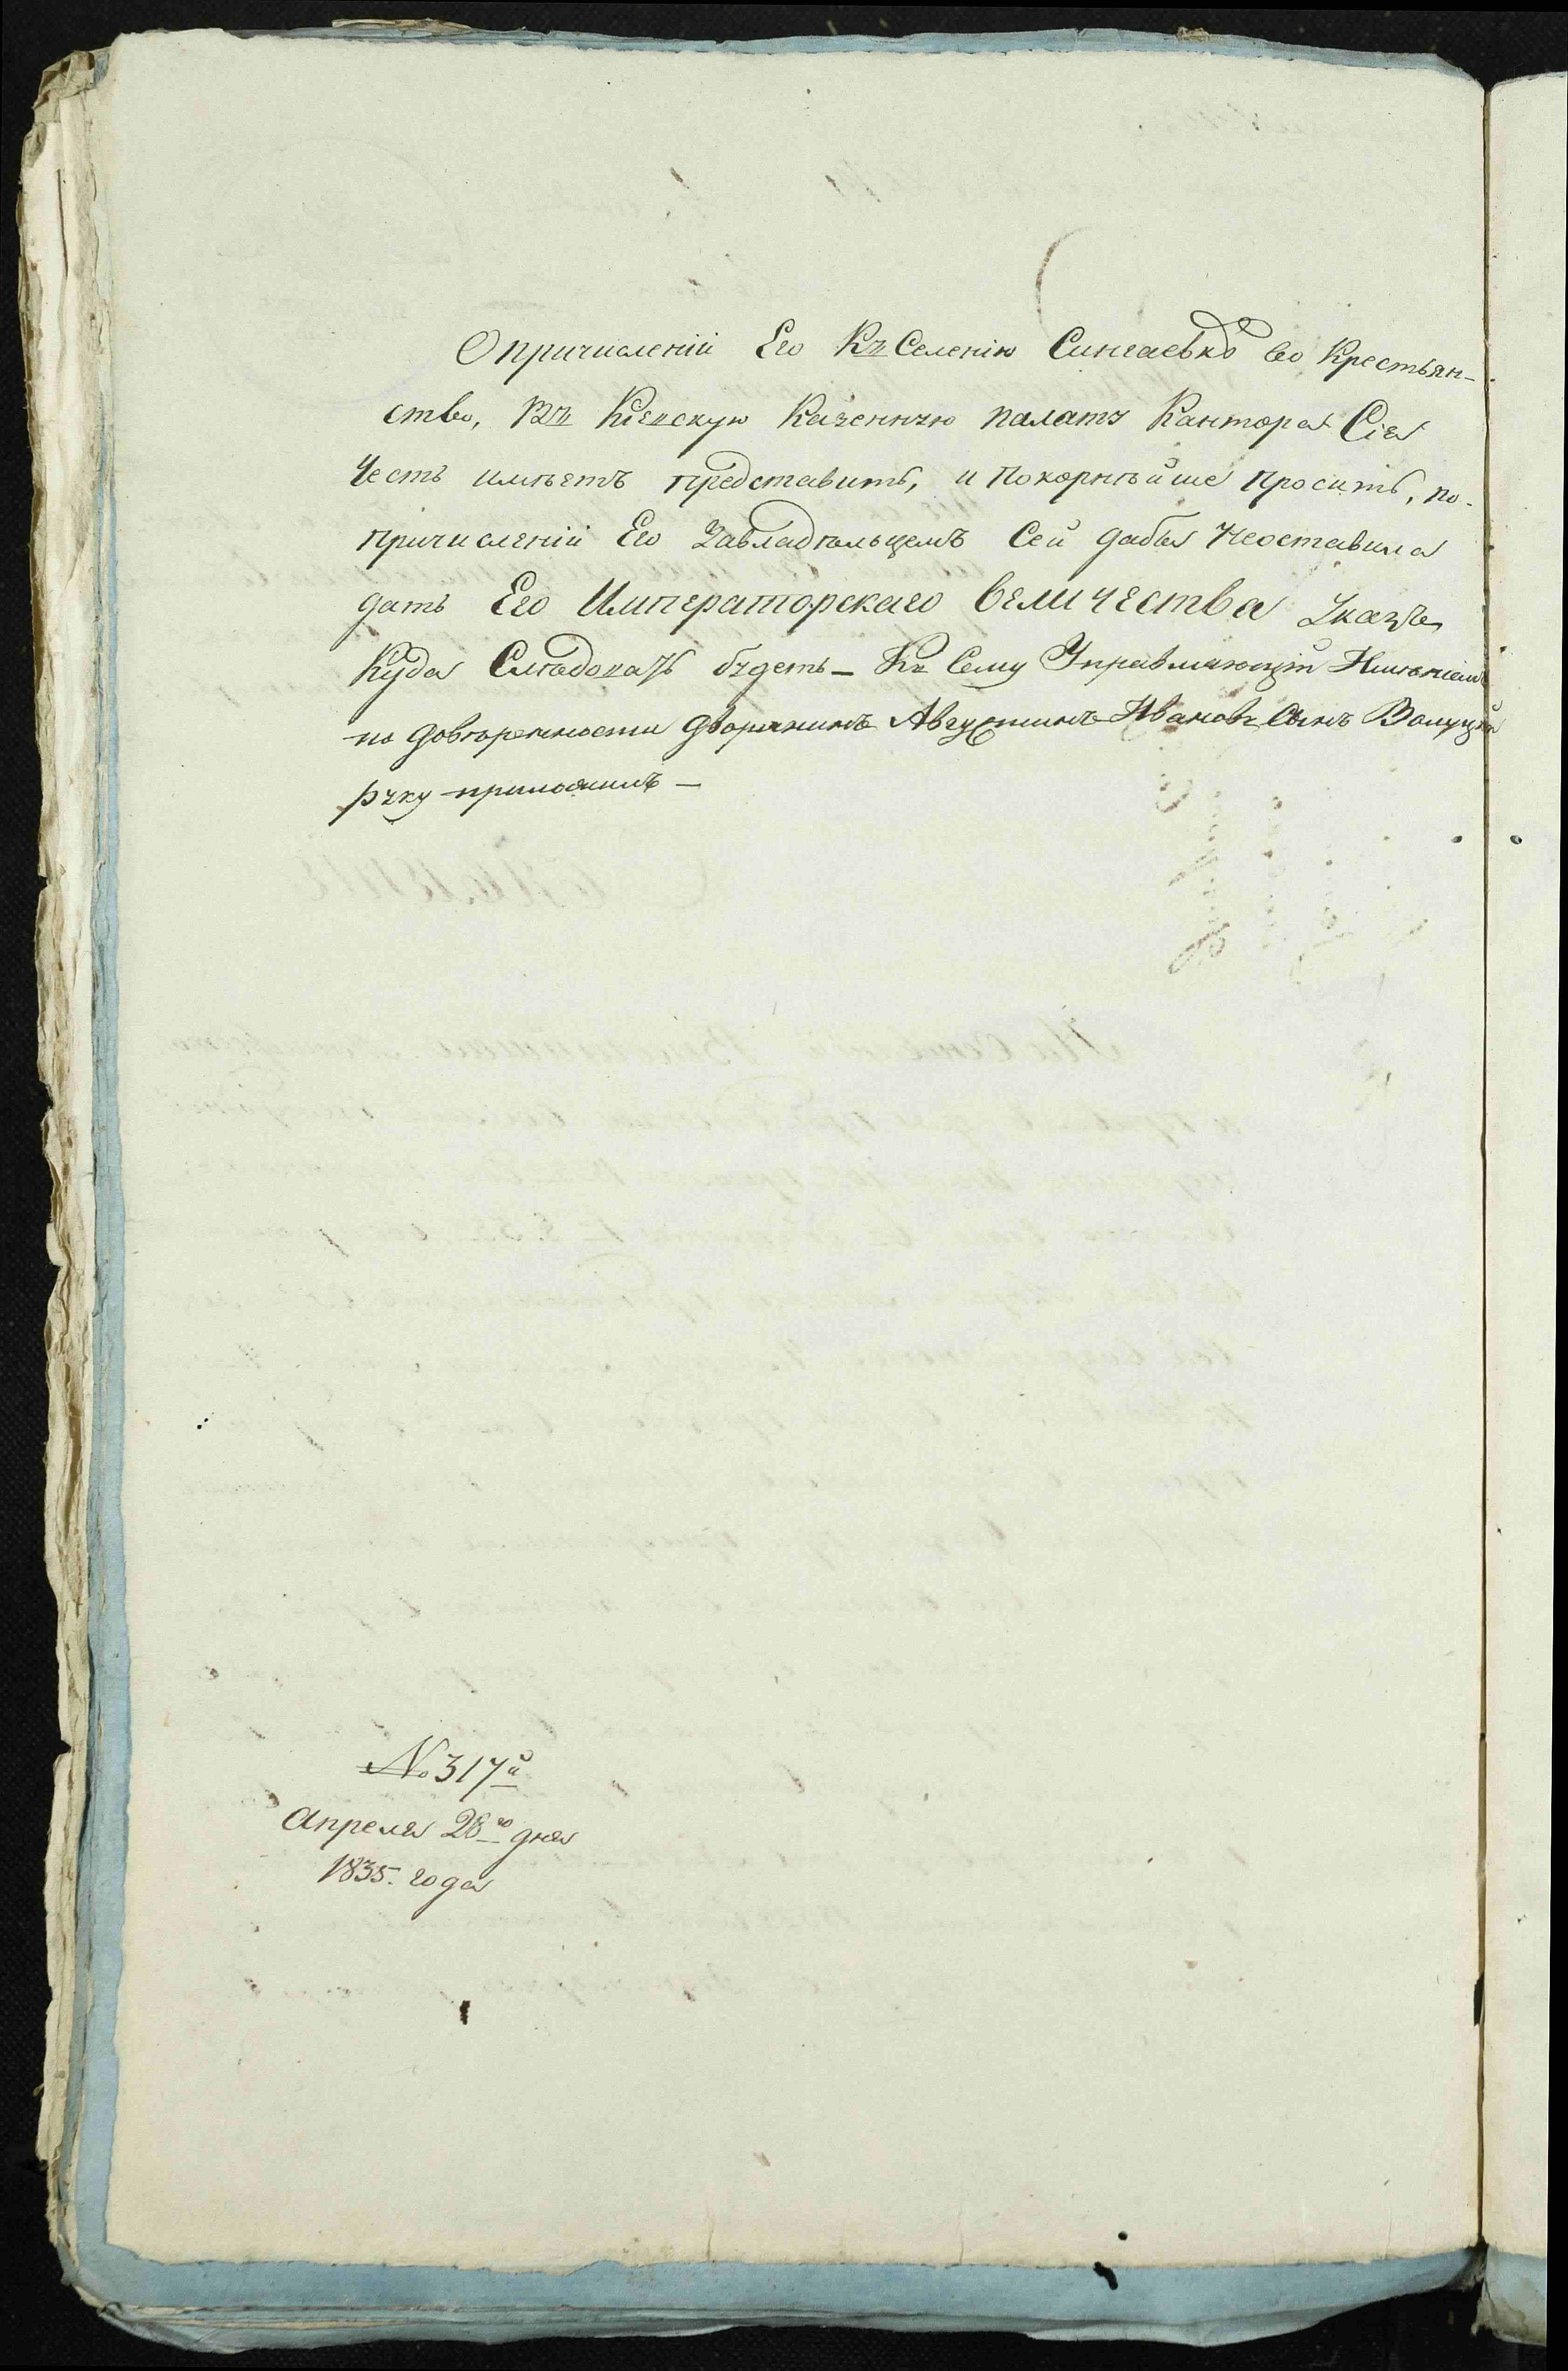 О причисленіи Его Къ Селенію Сингаевкѣ во Крестьян-
ство, Въ Кіевскую Казенную палату Кантора Сія
Честь имѣетъ представить, и Покорнѣйше просить, по
причисленіи Его Завладѣльцемъ Сей дабы Неоставила
дать Его Императорскаго Величества Указъ
Куда Слѣдоватъ будетъ – Къ Сему Управляющій Имѣніемъ
по довѣренности дворянинъ Августинъ Ивановъ Сынъ
руку приложилъ –
№ 317й
Апреля 28го дня
1835. года